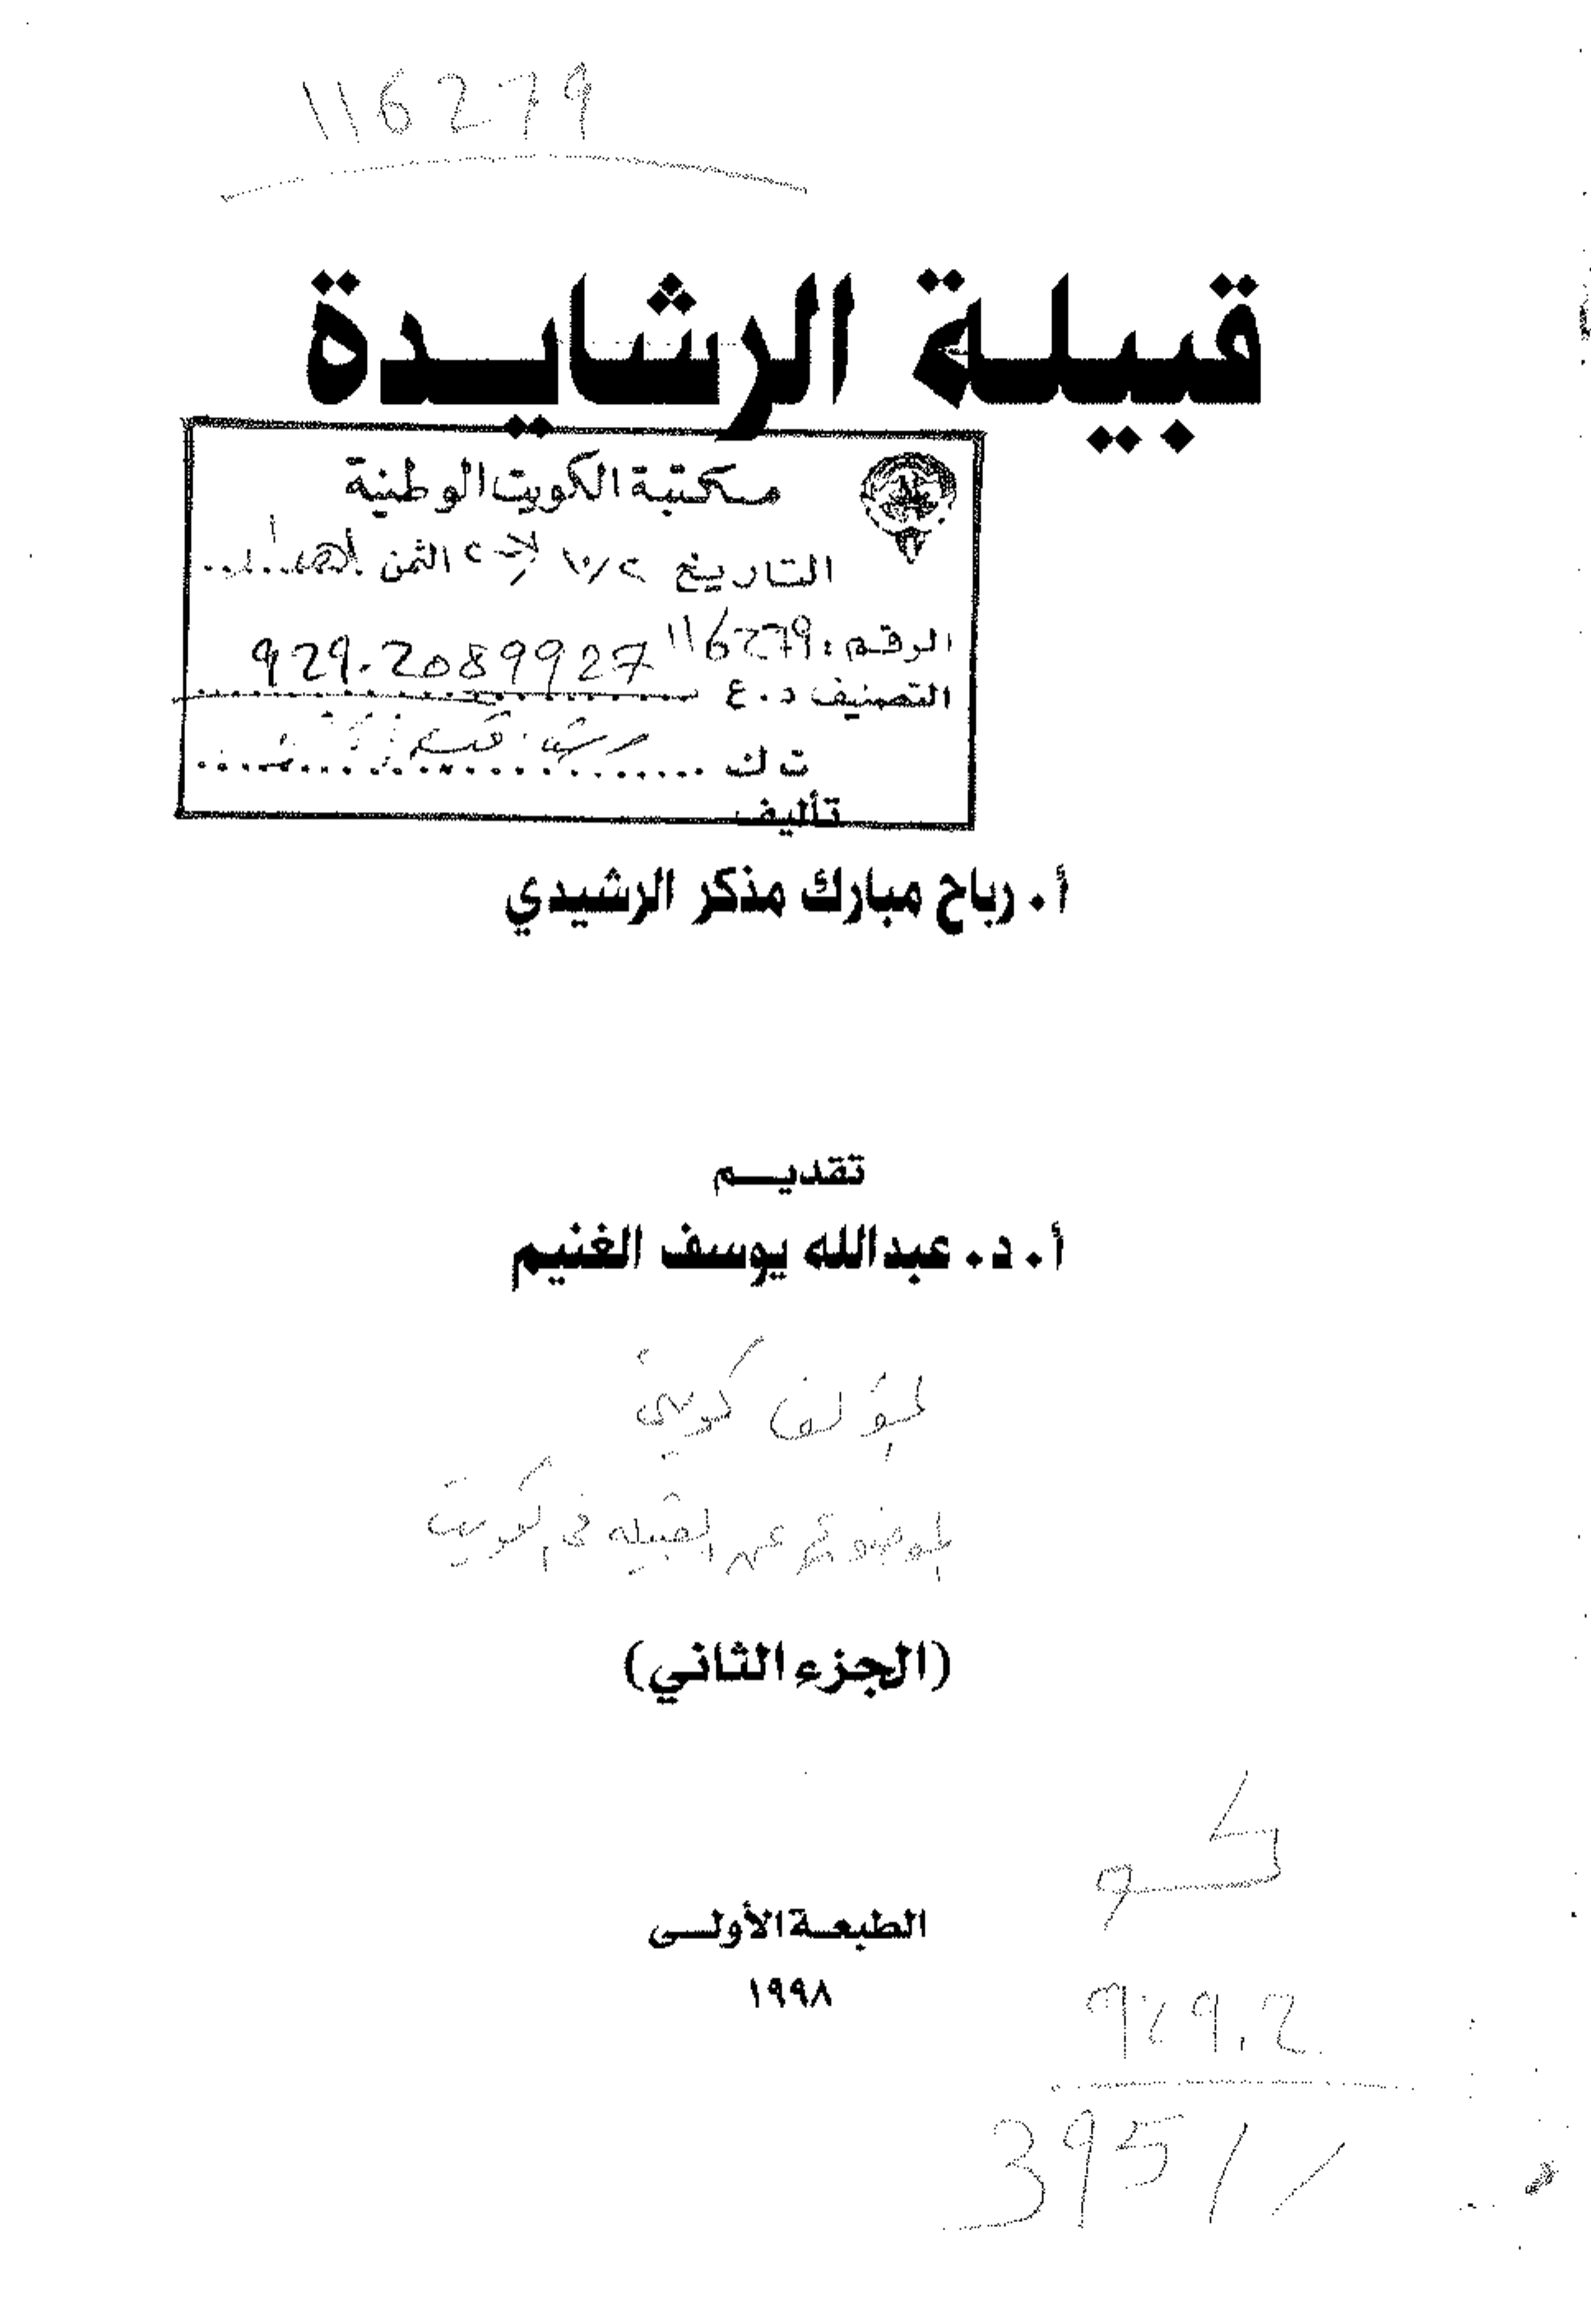 116279
قبيلة الرشايدة
مكتبة الكويت الوطنية
التاريخ الثمن إهداء
الرقم: 116279
929.2089927
التصنيف د.ع
ت ك
تأليف
أ. رباح مبارك مذكر الرشيدي
تقديم
أ. د. عبدالله يوسف الغنيم
المؤلف كويتي
الموضوع عن القبيله في الكويت
(الجزء الثاني)
كو
الطبعة الأولى
١٩٩٨
929.2
3951